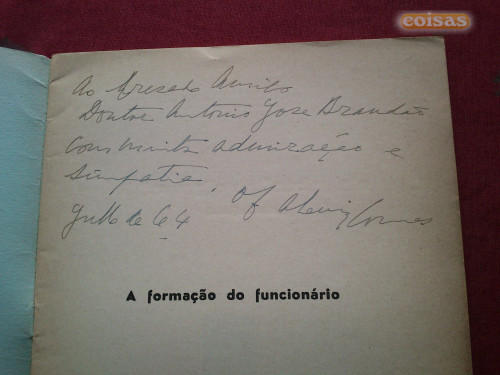 coisas
Ao Presado Amigo
Doutor António José Brandão
com muita admiração e
simpatia,
of.
de 64
A formação do funcionário